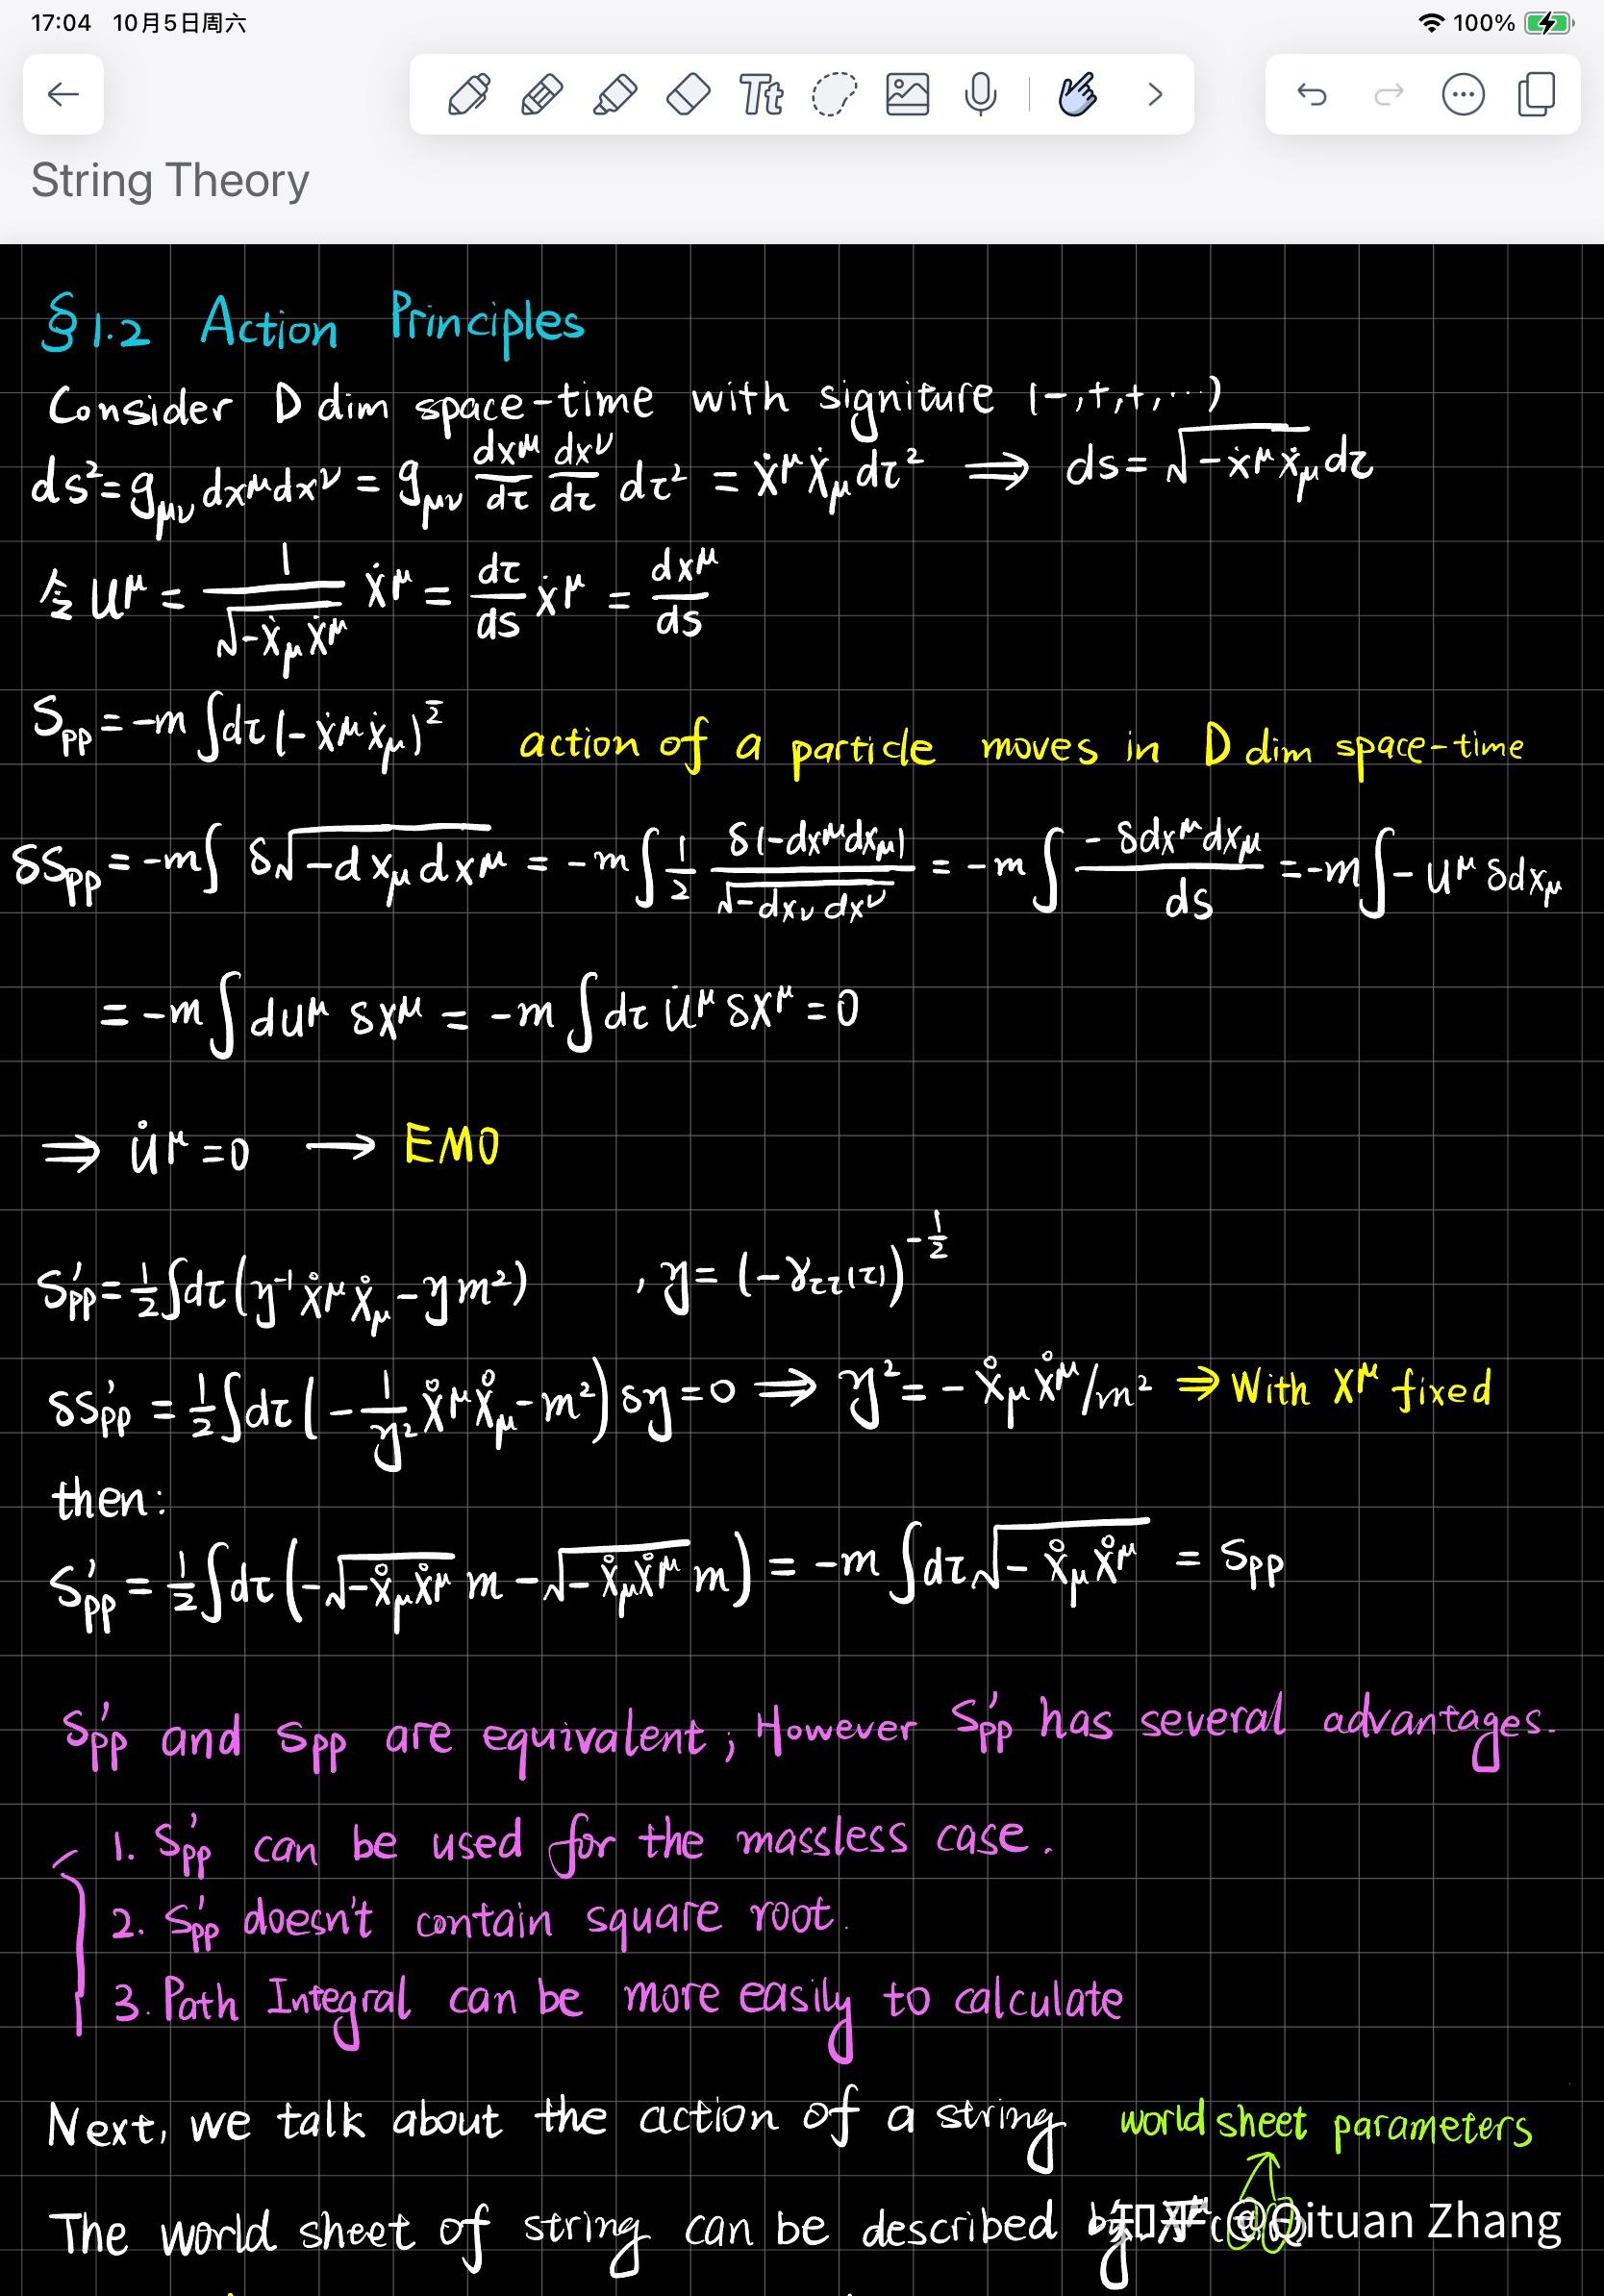 17:04 10月5日周六 100%
String Theory
§1.2 Action Principles
Consider D dim space-time with signiture (-,+,+,⋯)
ds² = g_μν dx^μ dx^ν = g_μν dx^μ/dτ dx^ν/dτ dτ² = ẋ^μ ẋ_μ dτ² ⟹ ds = √(-ẋ^μ ẋ_μ) dτ
令 u^μ = 1/√(-ẋ_μ ẋ^μ) ẋ^μ = dτ/ds ẋ^μ = dx^μ/ds
S_pp = -m ∫dτ (-ẋ^μ ẋ_μ)^½ action of a particle moves in D dim space-time
δS_pp = -m∫ δ√(-dx_μ dx^μ) = -m ∫ 1/2 δ(-dx^μ dx_μ)/√(-dx_ν dx^ν) = -m ∫ -δdx^μ dx_μ/ds = -m ∫ -u^μ δdx_μ
= -m ∫ du^μ δx^μ = -m ∫ dτ u̇^μ δx^μ = 0
⟹ u̇^μ = 0 → EMO
S'_pp = 1/2 ∫dτ (η⁻¹ ẋ^μ ẋ_μ - η m²) , η = (-γ_ττ(τ))^(-1/2)
δS'_pp = 1/2 ∫dτ (-1/η² ẋ^μ ẋ_μ - m²) δη = 0 ⟹ η² = -ẋ_μ ẋ^μ/m² ⇒ With X^μ fixed
then:
S'_pp = 1/2 ∫dτ (-√(-ẋ_μ ẋ^μ) m - √(-ẋ_μ ẋ^μ) m) = -m ∫dτ √(-ẋ_μ ẋ^μ) = S_pp
S'_pp and S_pp are equivalent; However S'_pp has several advantages.
1. S'_pp can be used for the massless case.
2. S'_pp doesn't contain square root.
3. Path Integral can be more easily to calculate
Next, we talk about the action of a string world sheet parameters
The world sheet of string can be described by
知乎 @Qituan Zhang